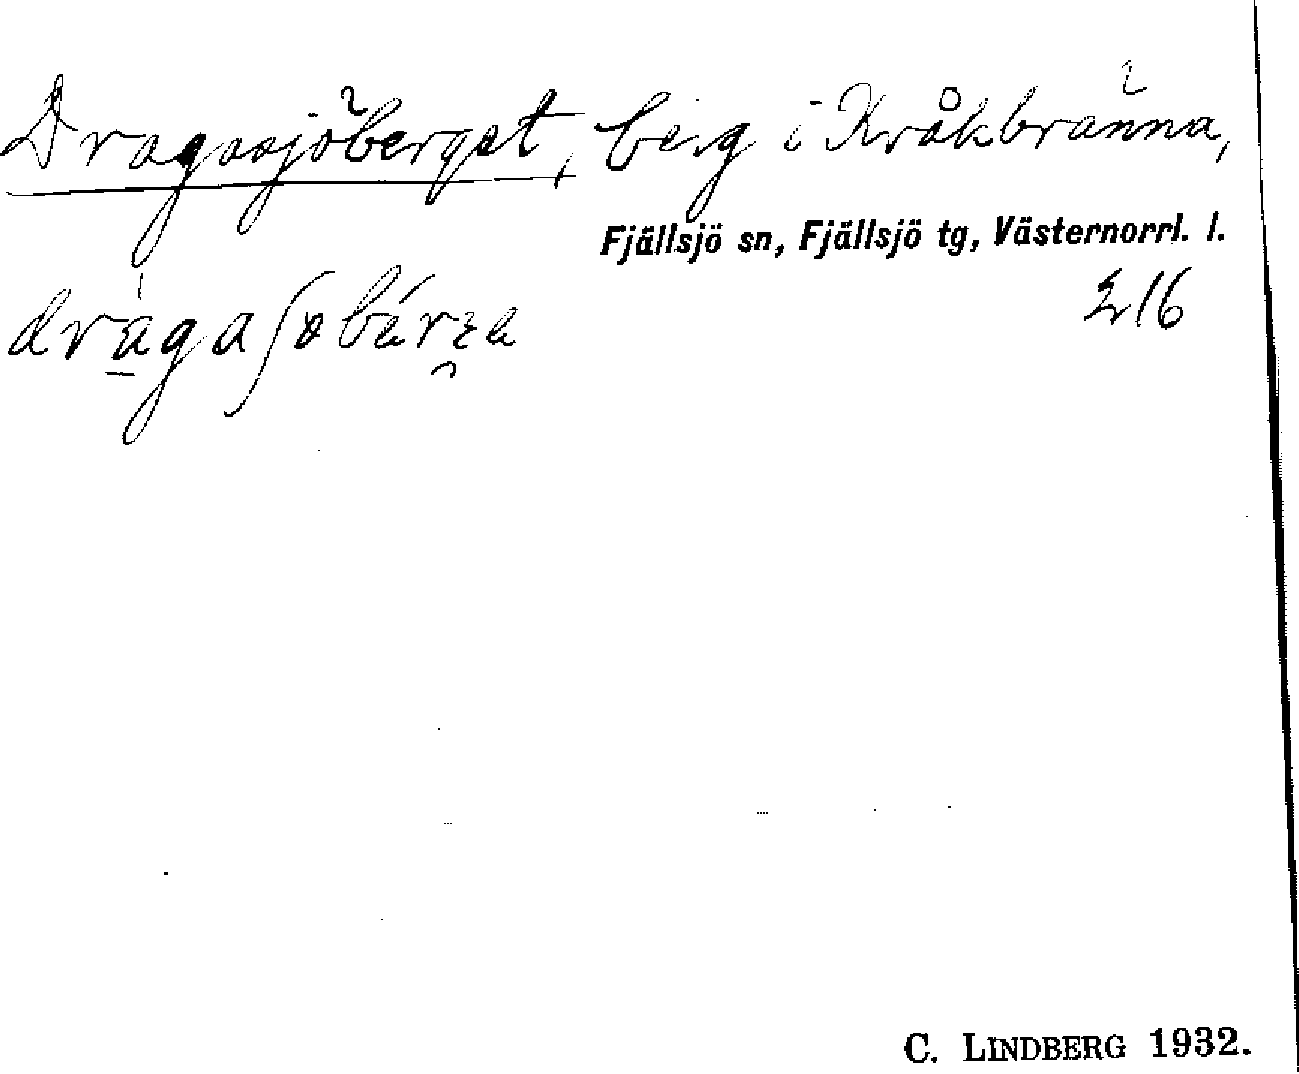 Dragasjöberget, berg i Kråkbränna,
Fjällsjö sn, Fjällsjö tg, Västernorrl. l.
C. LINDBERG 1932.